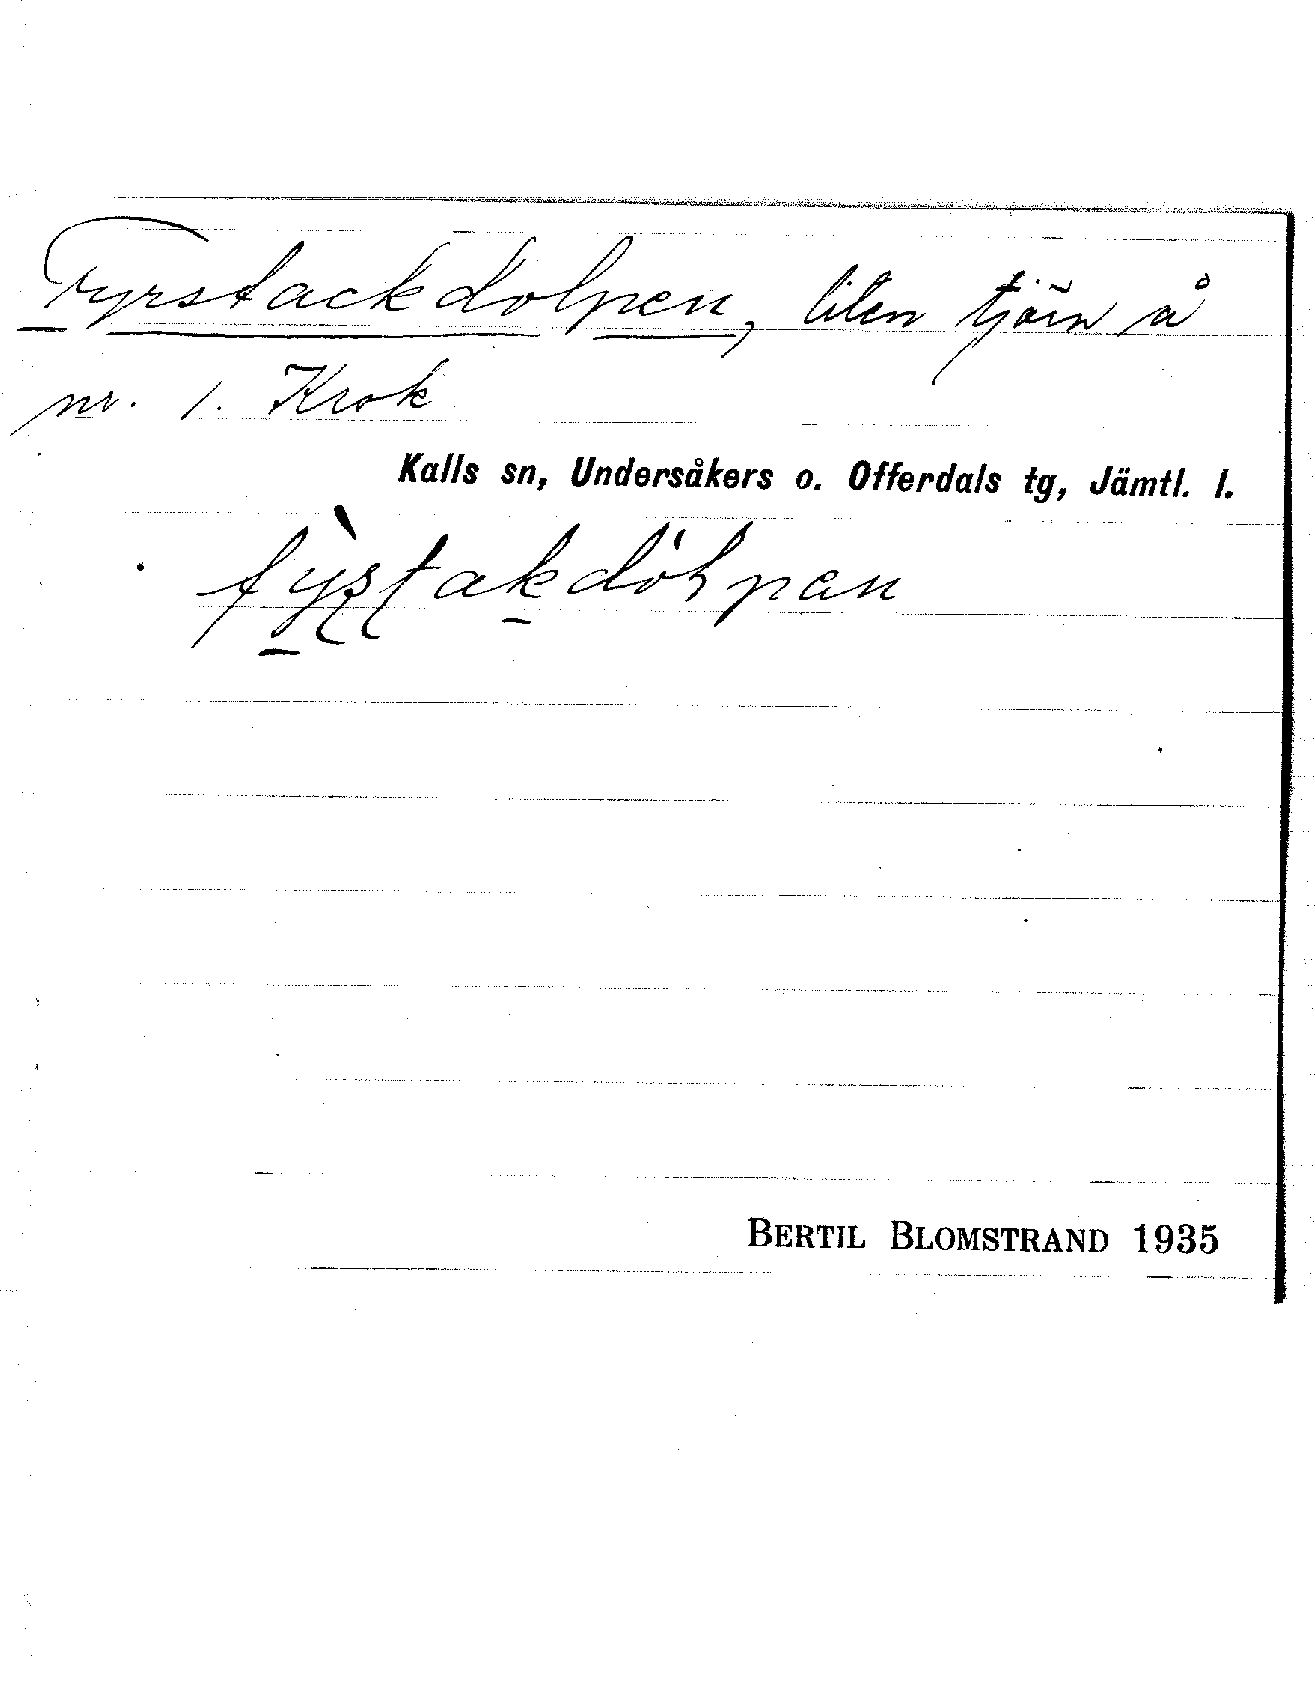 Fyrstackdolpen, liten tjärn å
nr. 1. Krok
Kalls sn, Undersåkers o. Offerdals tg, Jämtl. l.
BERTIL BLOMSTRAND 1935